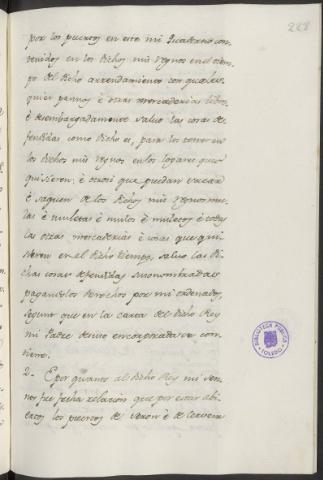 228
por los puertos en este mi Quaderno con-
tenidos en los dichos mis regnos en el tiem-
po del dicho arrendamiento con quales-
quier pannos é otras mercaderias libre
é desembargadamente salvo las cosas de-
fendidas como dicho es, para las tornar en
los dichos mis regnos en los logares que
quisieren; é otrosi que puedan sacar
é saquen de los dichos mis regnos mu-
las é muletas é mulos é muletos é todas
las otras mercaderias é cosas que qui-
sieren en el dicho tiempo, salvo las di-
chas cosas defendidas susonombradas
pagando los derechos por mi ordenados,
segunt que en la carta del dicho Rey
mi Padre de suso encorporada se con-
tiene.
2.. E por quanto al dicho Rey mi sen-
nor fue fecha relacion que por estar abi-
ertos los puertos de Veron é de Cervera
BIBLIOTECA PUBLICA
TOLEDO